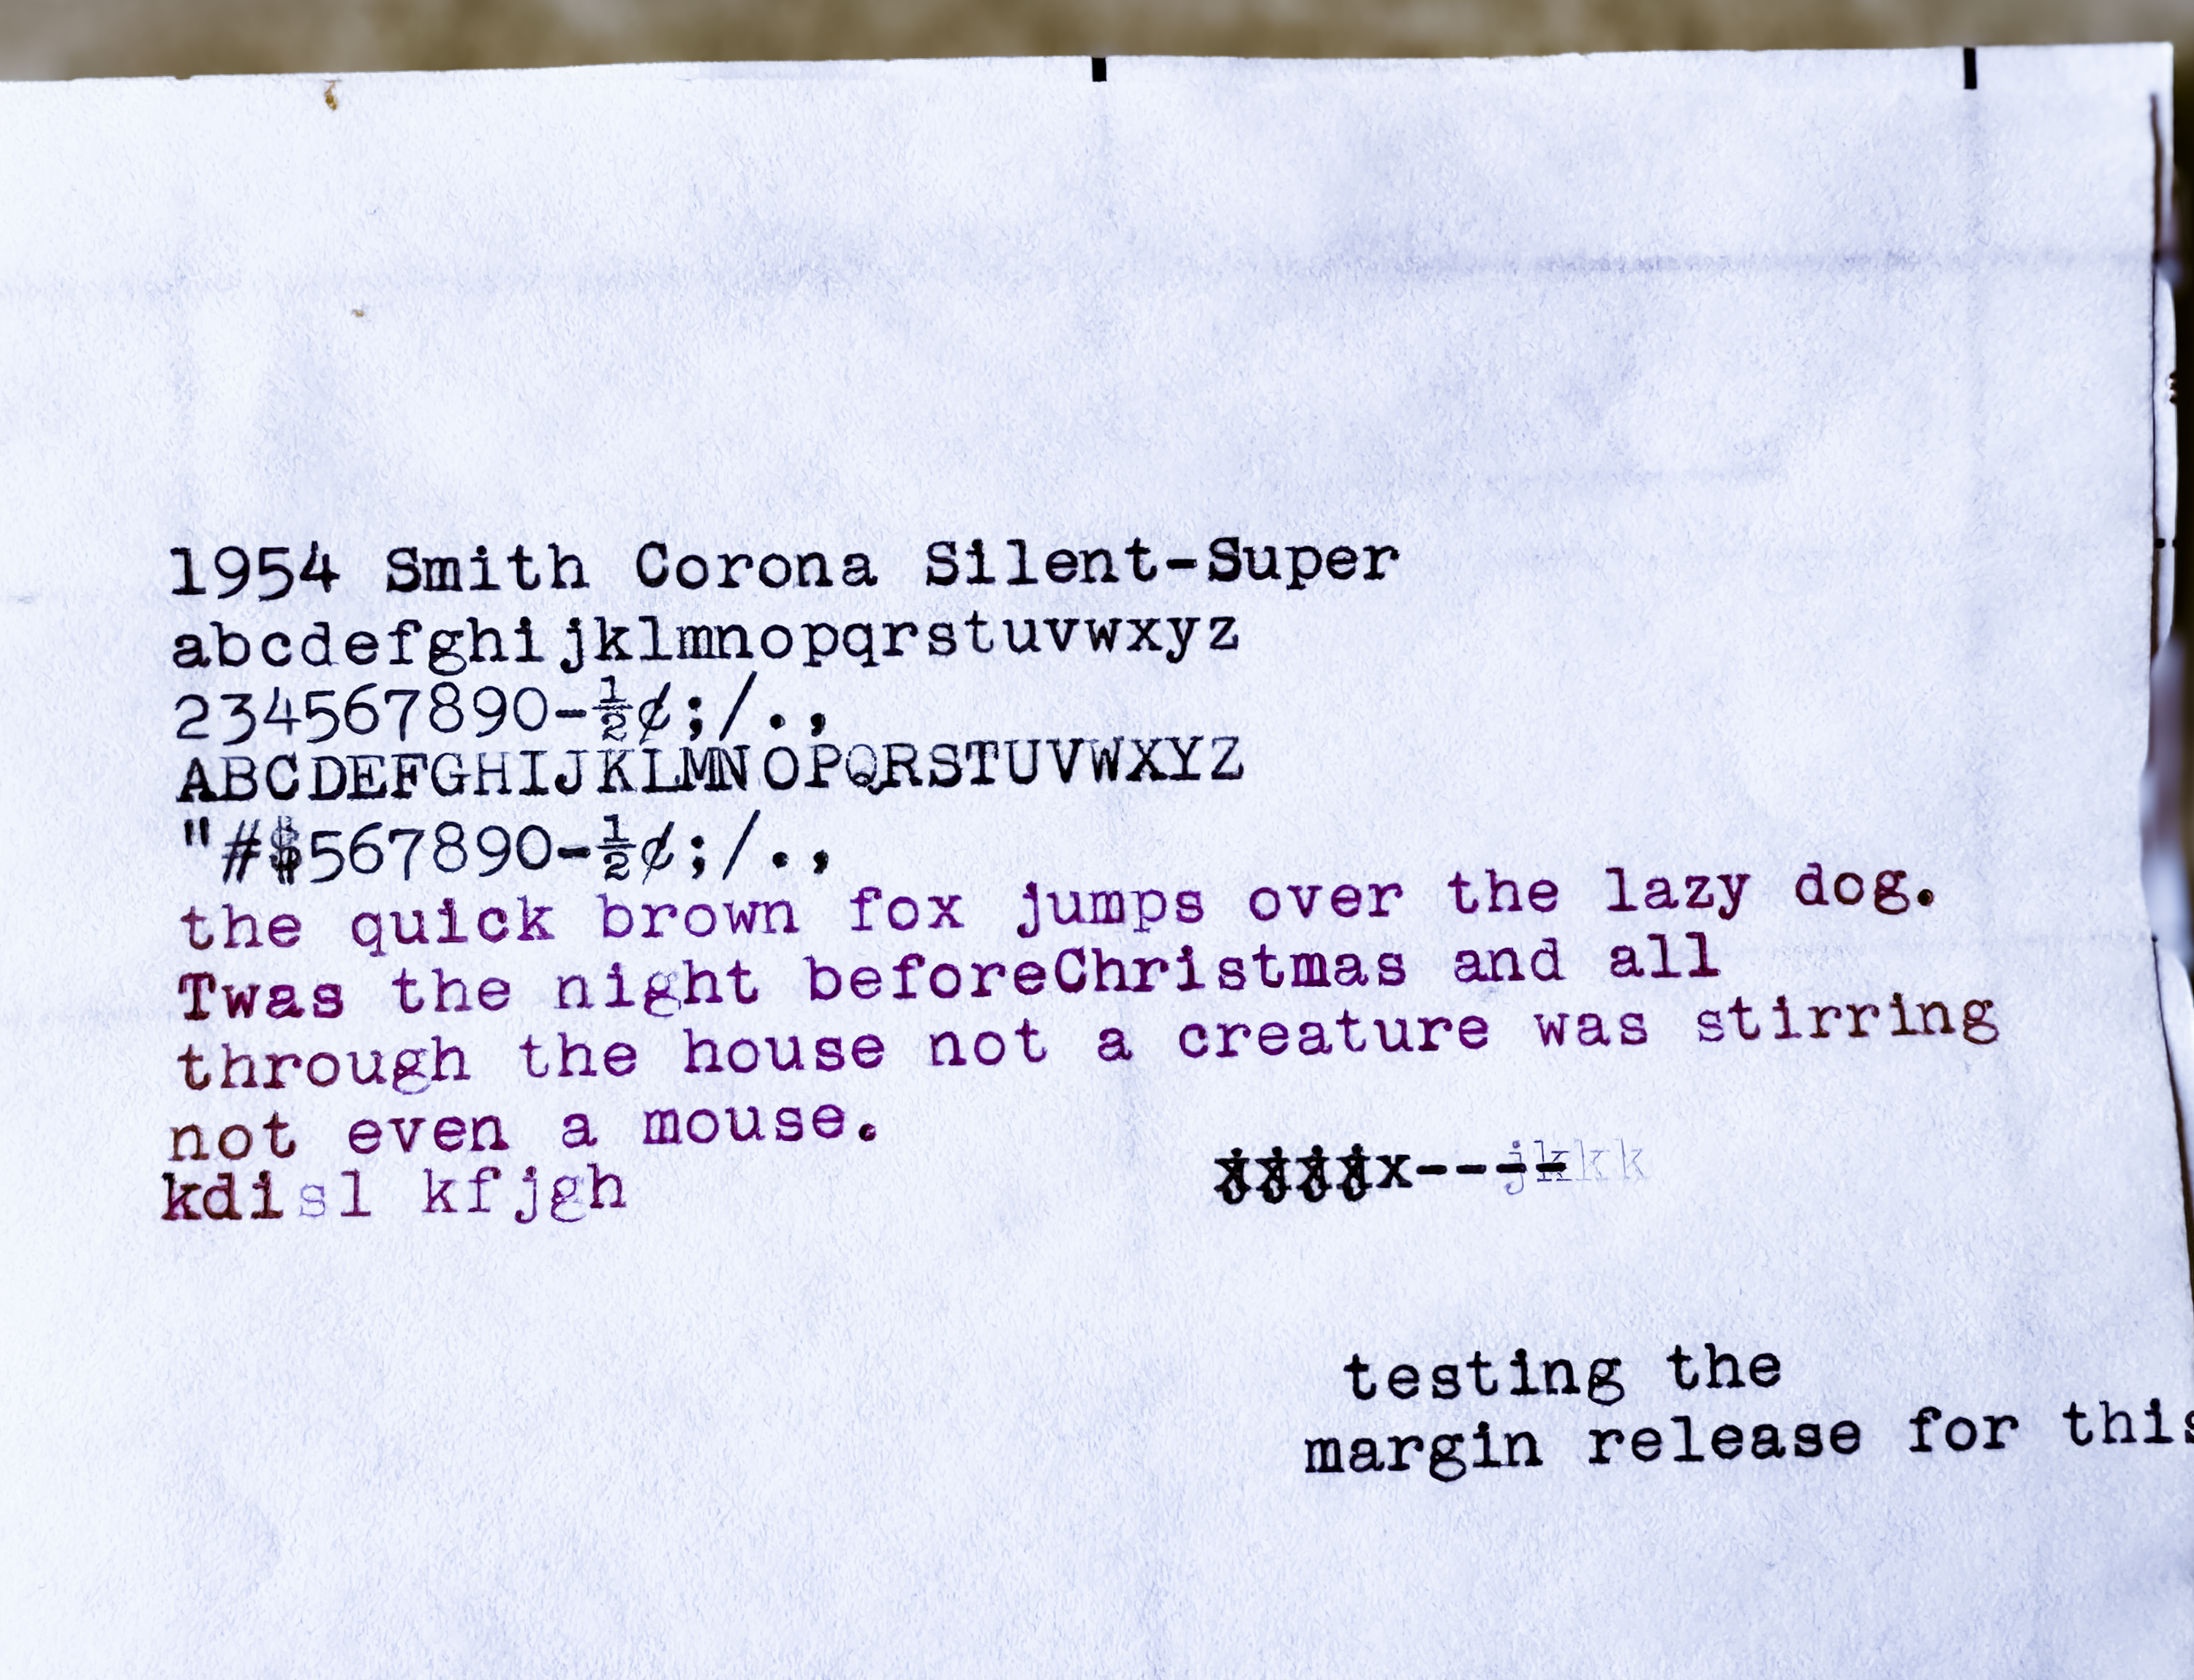 1954 Smith Corona Silent-Super
abcdefghijklmnopqrstuvwxyz
234567890-½¢;/.,
ABCDEFGHIJKLMNOPQRSTUVWXYZ
"#$567890-½¢;/.,
the quick brown fox jumps over the lazy dog.
Twas the night beforeChristmas and all
through the house not a creature was stirring
not even a mouse.
kdisl kfjgh
testing the
margin release for this